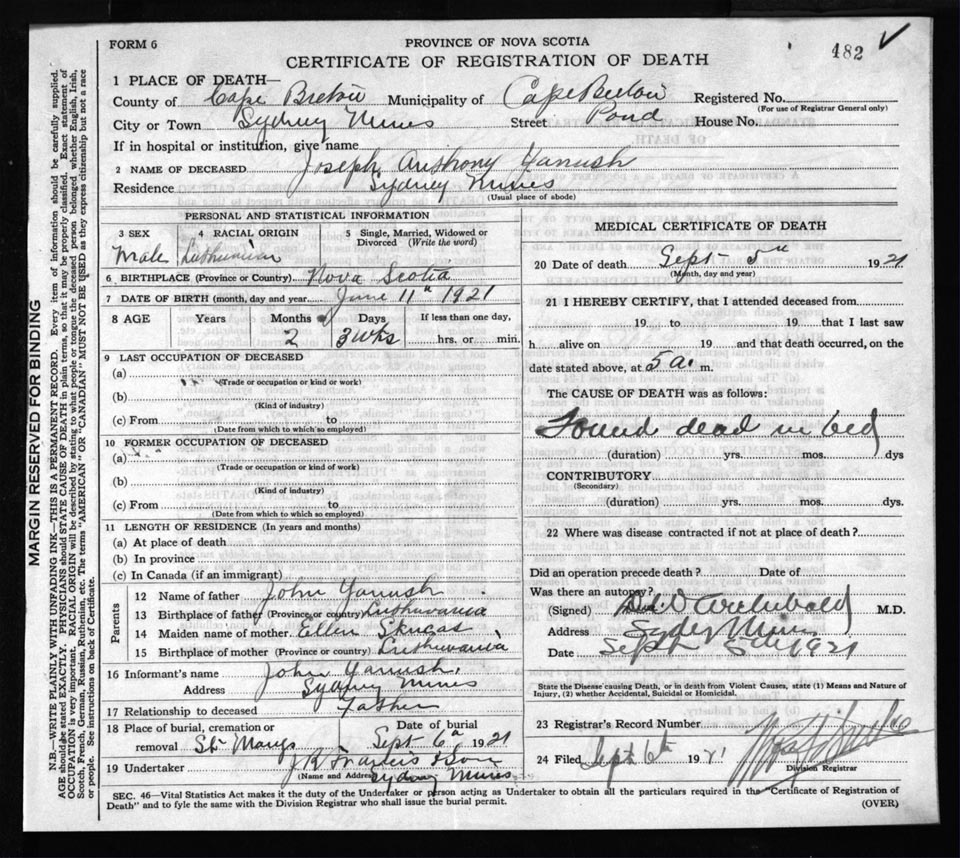 482
FORM 6
PROVINCE OF NOVA SCOTIA
CERTIFICATE OF REGISTRATION OF DEATH
MARGIN RESERVED FOR BINDING
N.B.—WRITE PLAINLY WITH UNFADING INK—THIS IS A PERMANENT RECORD. Every item of information should be carefully supplied.
AGE should be stated EXACTLY. PHYSICIANS should STATE CAUSE OF DEATH in plain terms, so that it may be properly classified. Exact statement of
OCCUPATION is very important. RACIAL ORIGIN will be described by stating to what people or tongue the deceased person belonged whether English, Irish,
Scotch, French, German, Russian, Ruthenian, etc. The terms "AMERICAN" OR "CANADIAN" MUST NOT BE USED as they express citizenship but not a race
or people. See instructions on back of Certificate.
1 PLACE OF DEATH—
County of Cape Breton Municipality of Cape Breton Registered No.
(For use of Registrar General only)
City or Town Sydney Mines Street Pond House No.
If in hospital or institution, give name
2 NAME OF DECEASED Joseph Anthony Yanush
Residence Sydney Mines
(Usual place of abode)
PERSONAL AND STATISTICAL INFORMATION
3 SEX 4 RACIAL ORIGIN 5 Single, Married, Widowed or
Divorced (Write the word)
Male Lithunian
6 BIRTHPLACE (Province or Country) Nova Scotia
7 DATE OF BIRTH (month, day and year) June 11th 1921
8 AGE Years Months Days If less than one day,
2 3 wks hrs. or min.
9 LAST OCCUPATION OF DECEASED
(a)
(Trade or occupation or kind or work)
(b)
(Kind of industry)
(c) From to
(Date from which to which so employed)
10 FORMER OCCUPATION OF DECEASED
(a)
(Trade or occupation or kind or work)
(b)
(Kind of industry)
(c) From to
(Date from which to which so employed)
11 LENGTH OF RESIDENCE (In years and months)
(a) At place of death
(b) In province
(c) In Canada (if an immigrant)
Parents
12 Name of father John Yanush
13 Birthplace of father (Province or country) Lithuvania
14 Maiden name of mother Ellen Skucas
15 Birthplace of mother (Province or country) Lithuvania
16 Informant's name John Yanush
Address Sydney Mines
17 Relationship to deceased Father
18 Place of burial, cremation or Date of burial
removal St. Marys Sept 6th 1921
19 Undertaker J R & Son
(Name and Address) Sydney Mines
MEDICAL CERTIFICATE OF DEATH
20 Date of death Sept 5th 1921
(Month, day and year)
21 I HEREBY CERTIFY, that I attended deceased from
19 to 19 that I last saw
h alive on 19 and that death occurred, on the
date stated above, at 5 a. m.
The CAUSE OF DEATH was as follows:
Found dead in bed
(duration) yrs. mos. dys
CONTRIBUTORY
(Secondary)
(duration) yrs. mos. dys.
22 Where was disease contracted if not at place of death?
Did an operation precede death? Date of
Was there an autopsy?
(Signed) Archibald M.D.
Address Sydney Mines
Date Sept 1921
State the Disease causing Death, or in death from Violent Causes, state (1) Means and Nature of
Injury, (2) whether Accidental, Suicidal or Homicidal.
23 Registrar's Record Number
24 Filed Sept 6th 1921
Division Registrar
SEC. 46—Vital Statistics Act makes it the duty of the Undertaker or person acting as Undertaker to obtain all the particulars required in the "Certificate of Registration of
Death" and to fyle the same with the Division Registrar who shall issue the burial permit.
(OVER)